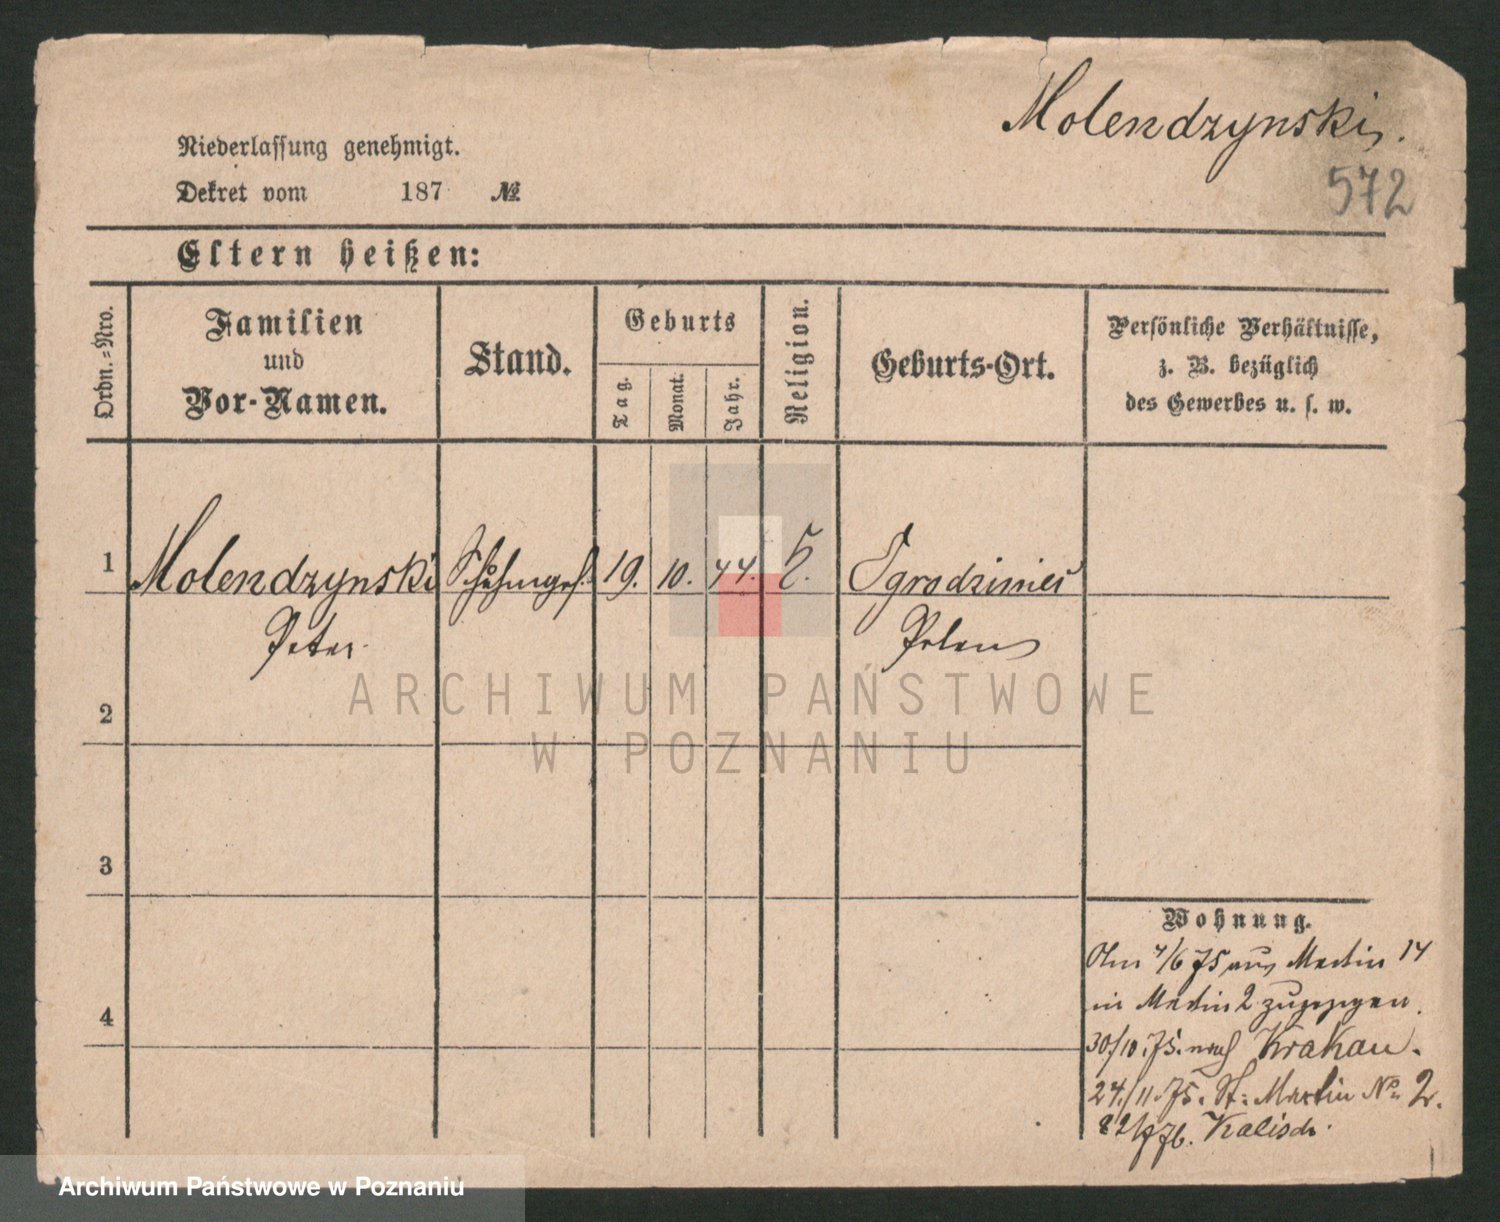 Molendzynski.
572
Niederlassung genehmigt.
Dekret vom 187 №
Eltern heißen:
Ordn.=Nro.
Familien
und
Vor-Namen.
Stand.
Geburts
Tag.
Monat.
Jahr.
Religion.
Geburts-Ort.
Persönliche Verhältnisse,
z. B. bezüglich
des Gewerbes u. s. w.
1 Molendzynski 19. 10. 44.
Peter Polen
2
3
4
ARCHIWUM PAŃSTWOWE
W POZNANIU
Wohnung.
4/6 75 aus Martin 14
in Martin 2 zugezogen.
30/10.75. nach Krakau.
24/11.75. St. Martin No 2.
Kalisch.
Archiwum Państwowe w Poznaniu